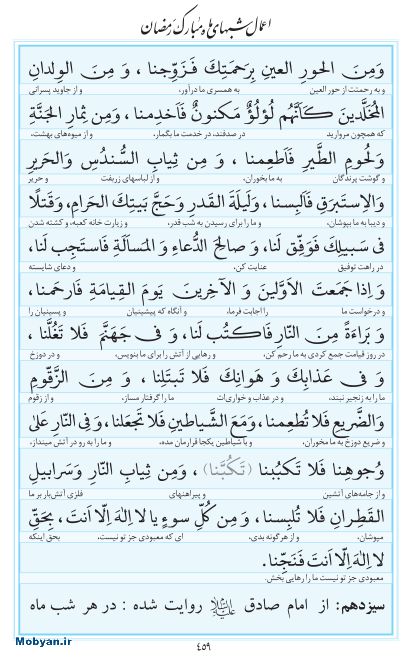 اعمال شبهای ماه مبارک رمضان
وَمِنَ الحورِ العينِ بِرَحمَتِكَ فَزَوِّجنا ، وَ مِنَ الوِلدانِ
و به رحمتت از حور العین به همسری ما درآور، و از جاوید پسرانی
المُخَلَّدينَ كَاَنَّهُم لُؤلُؤٌ مَكنونٌ فَاَخدِمنا ، وَمِن ثِمارِ الجَنَّةِ
که همچون مروارید در صدفند، در خدمت ما بگمار، و از میوه‌های بهشت،
وَلُحومِ الطَّيرِ فَاَطعِمنا ، وَ مِن ثِيابِ السُّندُسِ وَالحَريرِ
و گوشت پرندگان به ما بخوران، و از لباسهای زریفت و حریر
وَالاِستَبرَقِ فَاَلبِسنا ، وَلَيلَةَ القَدرِ وَحَجَّ بَيتِكَ الحَرامِ، وَقَتلًا
و دیبا به ما بپوشان، و ما را برای رسیدن به شب قدر، و زیارت خانه کعبه، و کشته شدن
فى سَبيلِكَ فَوَفِّق لَنا، وَ صالِحَ الدُّعاءِ وَ المَسأَلَةِ فَاستَجِب لَنا،
در راهت توفیق عنایت کن، و دعای شایسته
وَ اِذا جَمَعتَ الاَوَّلينَ وَ الآخِرينَ يَومَ القِيامَةِ فَارحَمنا،
و درخواست ما را اجابت فرما، و آنگاه که پیشینیان و پسینیان را
وَ بَراءَةً مِنَ النّارِ فَاكتُب لَنا ، وَ فى جَهَنَّمَ فَلا تَغُلَّنا ،
در روز قیامت جمع کردی به ما رحم کن، و رهایی از آتش را برای ما بنویس، و در دوزخ
وَ فى عَذابِكَ وَ هَوانِكَ فَلا تَبتَلِنا ، وَ مِنَ الزَّقّومِ
ما را به زنجیر نبند، و در عذاب و خواری‌ات ما را گرفتار مساز، و از زقوم
وَالضَّريعِ فَلا تُطعِمنا، وَمَعَ الشَّياطينِ فَلا تَجعَلنا، وَفِى النّارِ عَلىٰ
و ضریع دوزخ به ما مخوران، و با شیاطین یکجا قرارمان مده، و ما را به رو در آتش مینداز،
وُجوهِنا فَلا تَكبُبنا (تَكُبَّنا) ، وَمِن ثِيابِ النّارِ وَسَرابيلِ
و از جامه‌های آتشین و پیراهنهای فلزی آتش‌بار بر ما
القَطِرانِ فَلا تُلبِسنا ، وَ مِن كُلِّ سوءٍ يا لا اِلٰهَ اِلّا اَنتَ ، بِحَقِّ
مپوشان، و از هرگونه بدی، ای که معبودی جز تو نیست، بحق اینکه
لا اِلٰهَ اِلّا اَنتَ فَنَجِّنا.
معبودی جز تو نیست ما را رهایی بخش.
سیزدهم: از امام صادق علیه‌السلام روایت شده : در هر شب ماه
۴۵۹
Mobyan.ir